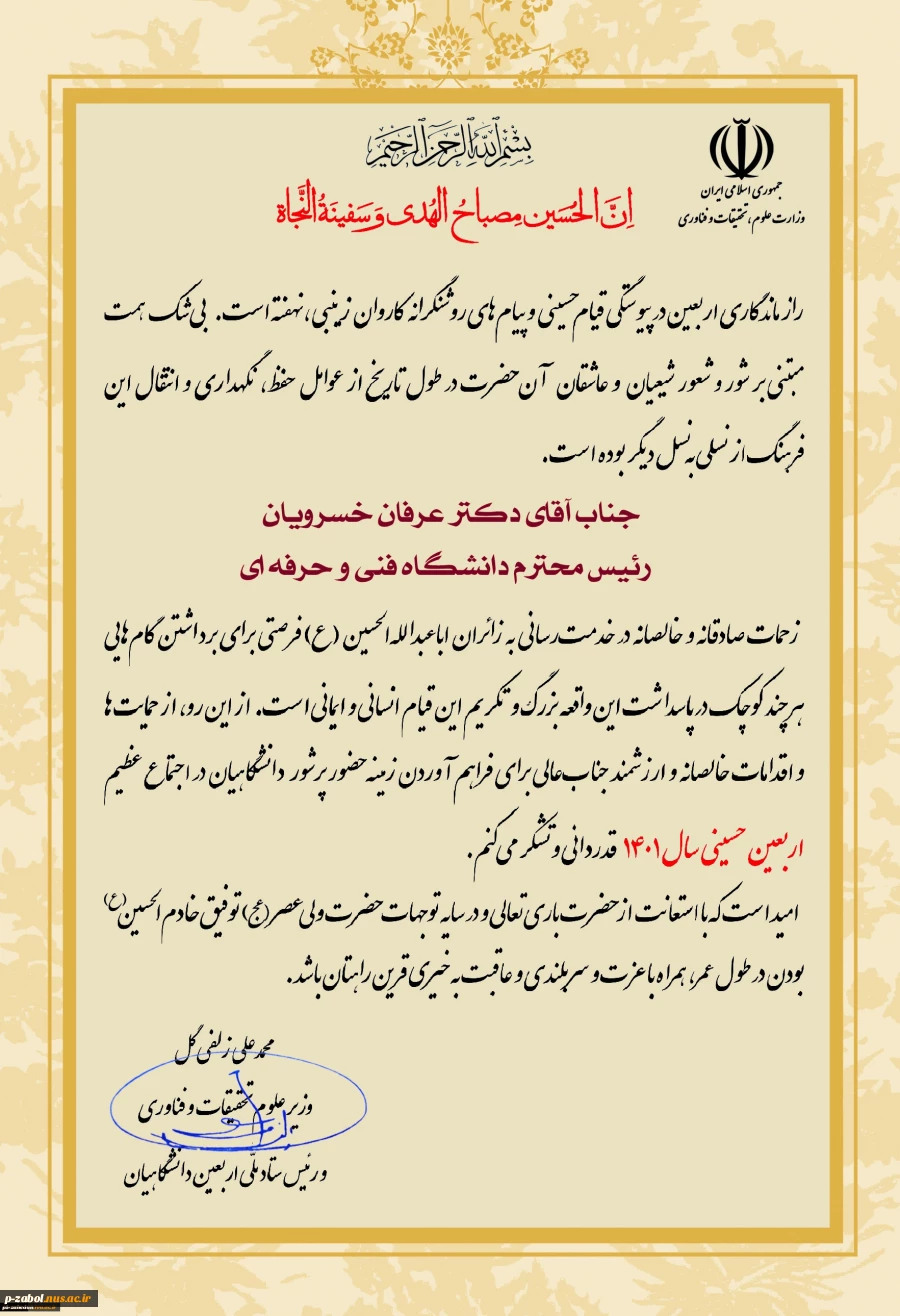 بسم الله الرحمن الرحیم
جمهوری اسلامی ایران
وزارت علوم، تحقیقات و فناوری
اِنَّ الحُسَین مِصباحُ الهُدی وَ سَفینَةُ النَّجاة
راز ماندگاری اربعین در پیوستگی قیام حسینی و پیام های روشنگرانه کاروان زینبی، نهفته است. بی شک همت
مبتنی بر شور و شعور شیعیان و عاشقان آن حضرت در طول تاریخ از عوامل حفظ، نگهداری و انتقال این
فرهنگ از نسلی به نسل دیگر بوده است.
جناب آقای دکتر عرفان خسرویان
رئیس محترم دانشگاه فنی و حرفه ای
زحمات صادقانه و خالصانه در خدمت رسانی به زائران اباعبدالله الحسین (ع) فرصتی برای برداشتن گام هایی
هرچند کوچک در پاسداشت این واقعه بزرگ و تکریم این قیام انسانی و ایمانی است. از این رو، از حمایت ها
و اقدامات خالصانه و ارزشمند جناب عالی برای فراهم آوردن زمینه حضور پرشور دانشگاهیان در اجتماع عظیم
اربعین حسینی سال ۱۴۰۱ قدردانی و تشکر می کنم.
امید است که با استعانت از حضرت باری تعالی و در سایه توجهات حضرت ولی عصر (عج) توفیق خادم الحسین (ع)
بودن در طول عمر، همراه با عزت و سربلندی و عاقبت به خیری قرین راهتان باشد.
محمدعلی زلفی گل
وزیر علوم تحقیقات و فناوری
و رئیس ستاد ملّی اربعین دانشگاهیان
p-zabol.nus.ac.ir